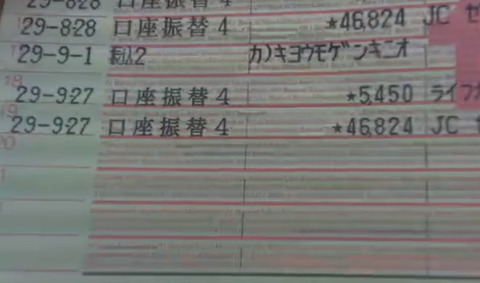 29-8-28 口座振替4 ★46,824 JC セ
29-9-1 振込2 カ)キヨウモゲンキニオ
18
29-9-27 口座振替4 ★5,450 ライフカ
19
29-9-27 口座振替4 ★46,824 JC セ
20